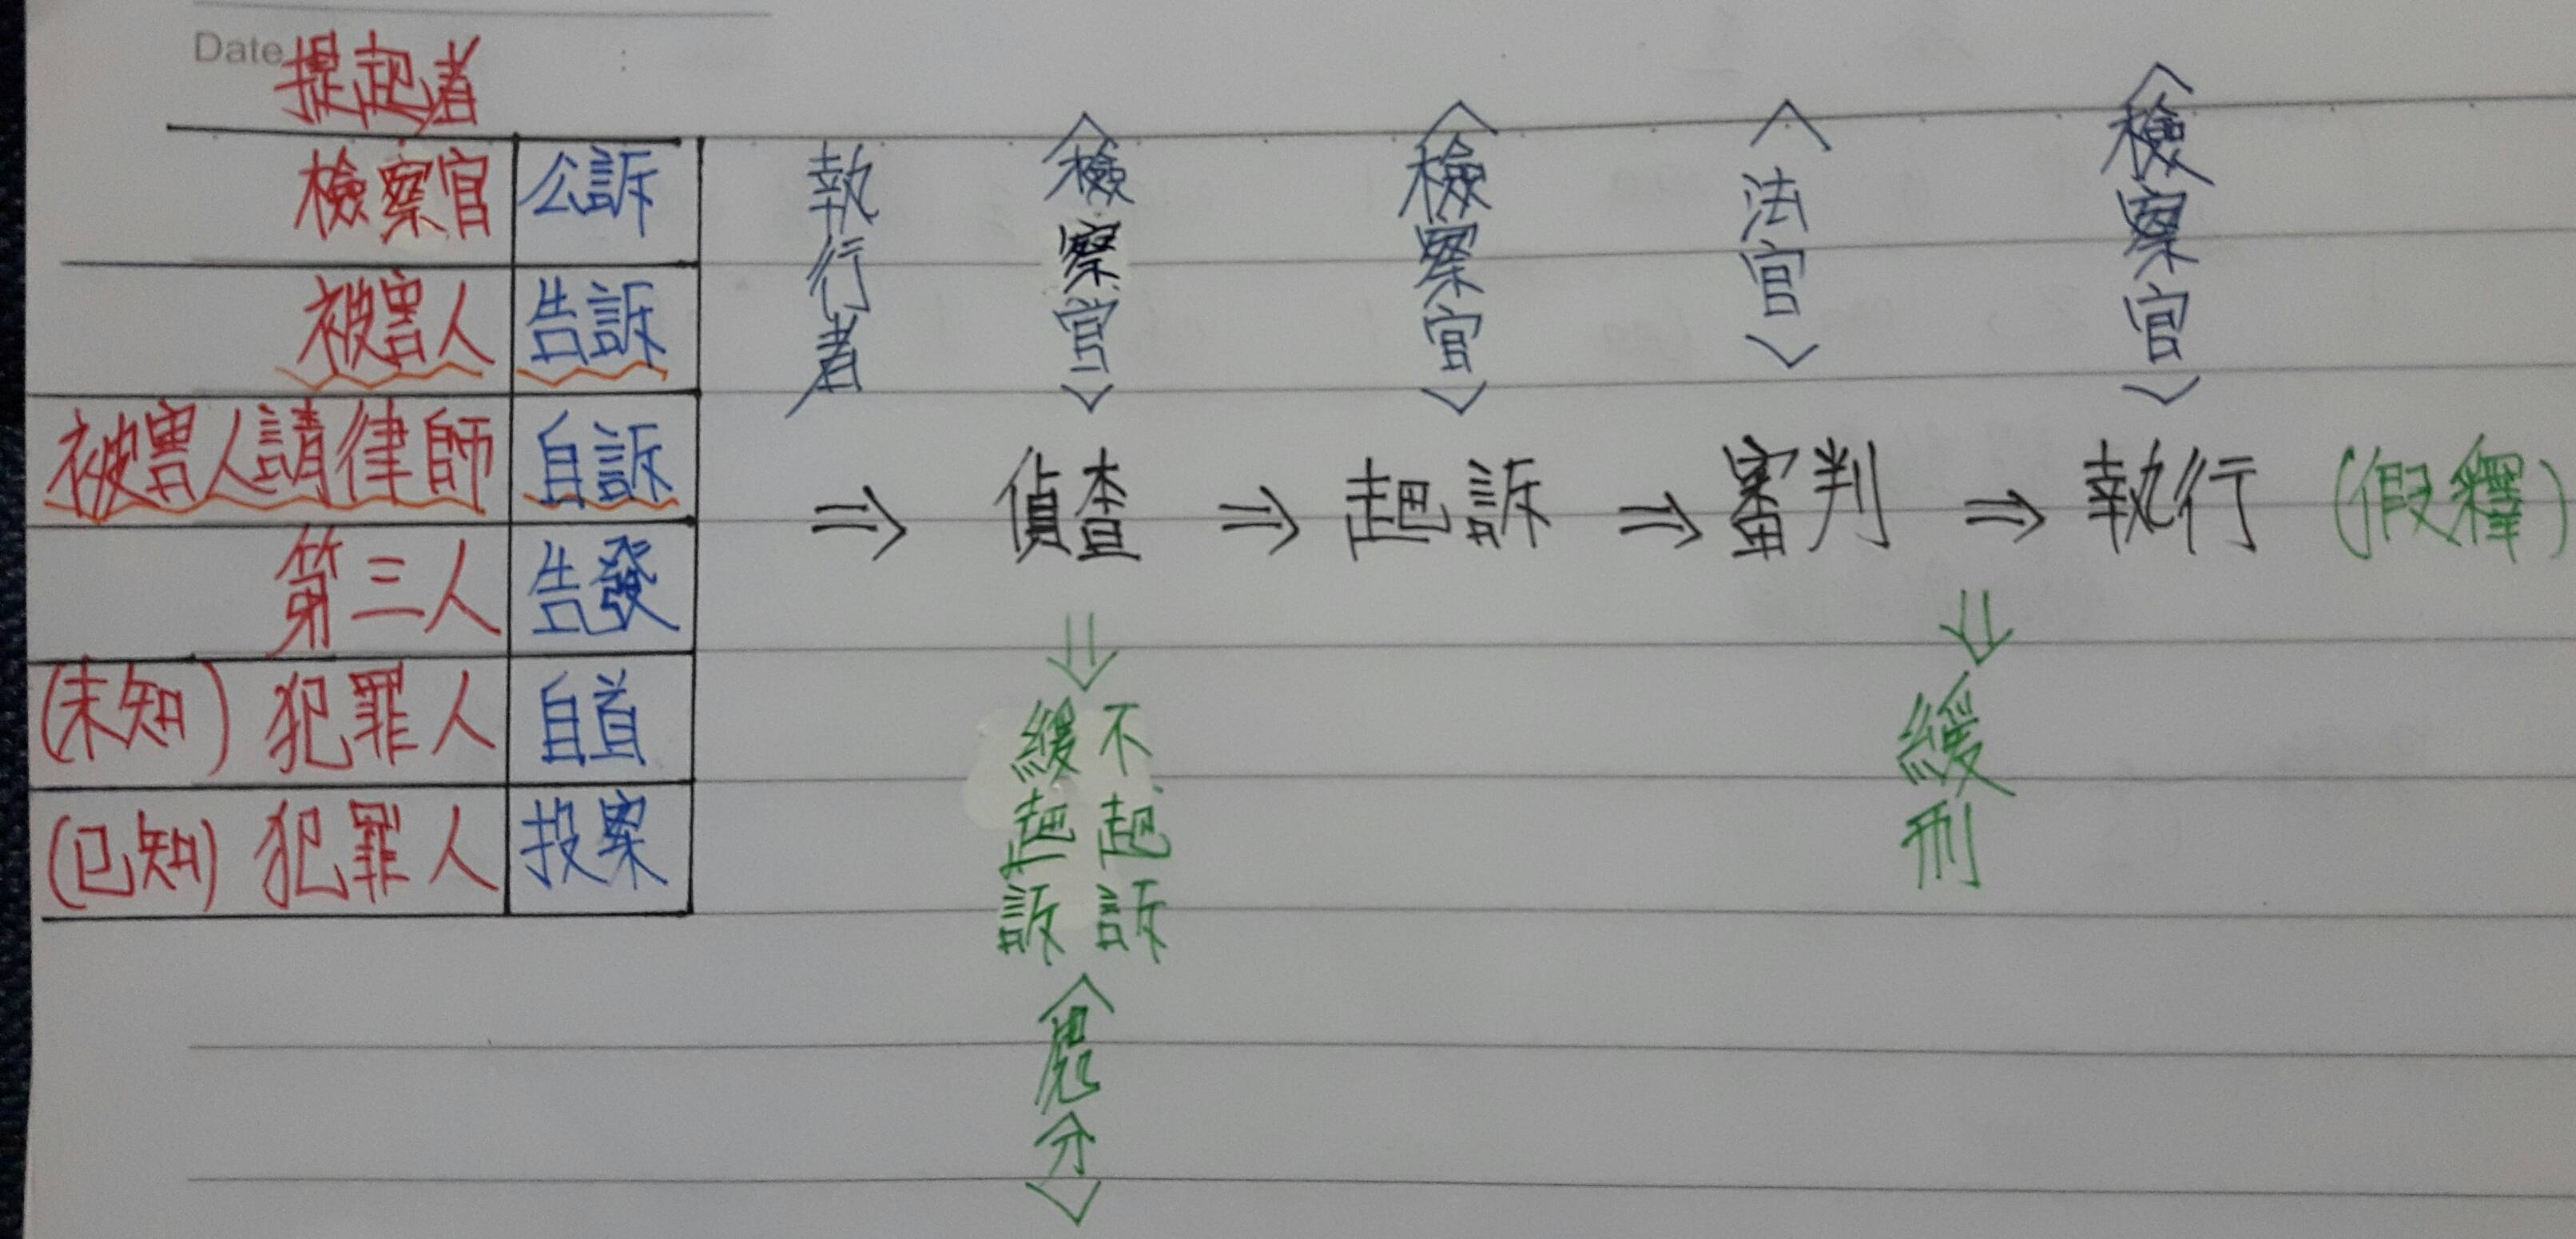 Date
提起者
檢察官 公訴
被害人 告訴
被害人請律師 自訴
第三人 告發
(未知) 犯罪人 自首
(已知) 犯罪人 投案
執行者
︿檢察官﹀
︿檢察官﹀
︿法官﹀
︿檢察官﹀
⇒ 偵查 ⇒ 起訴 ⇒ 審判 ⇒ 執行 (假釋)
⇓
不起訴
緩起訴
︿處分﹀
⇓
緩刑